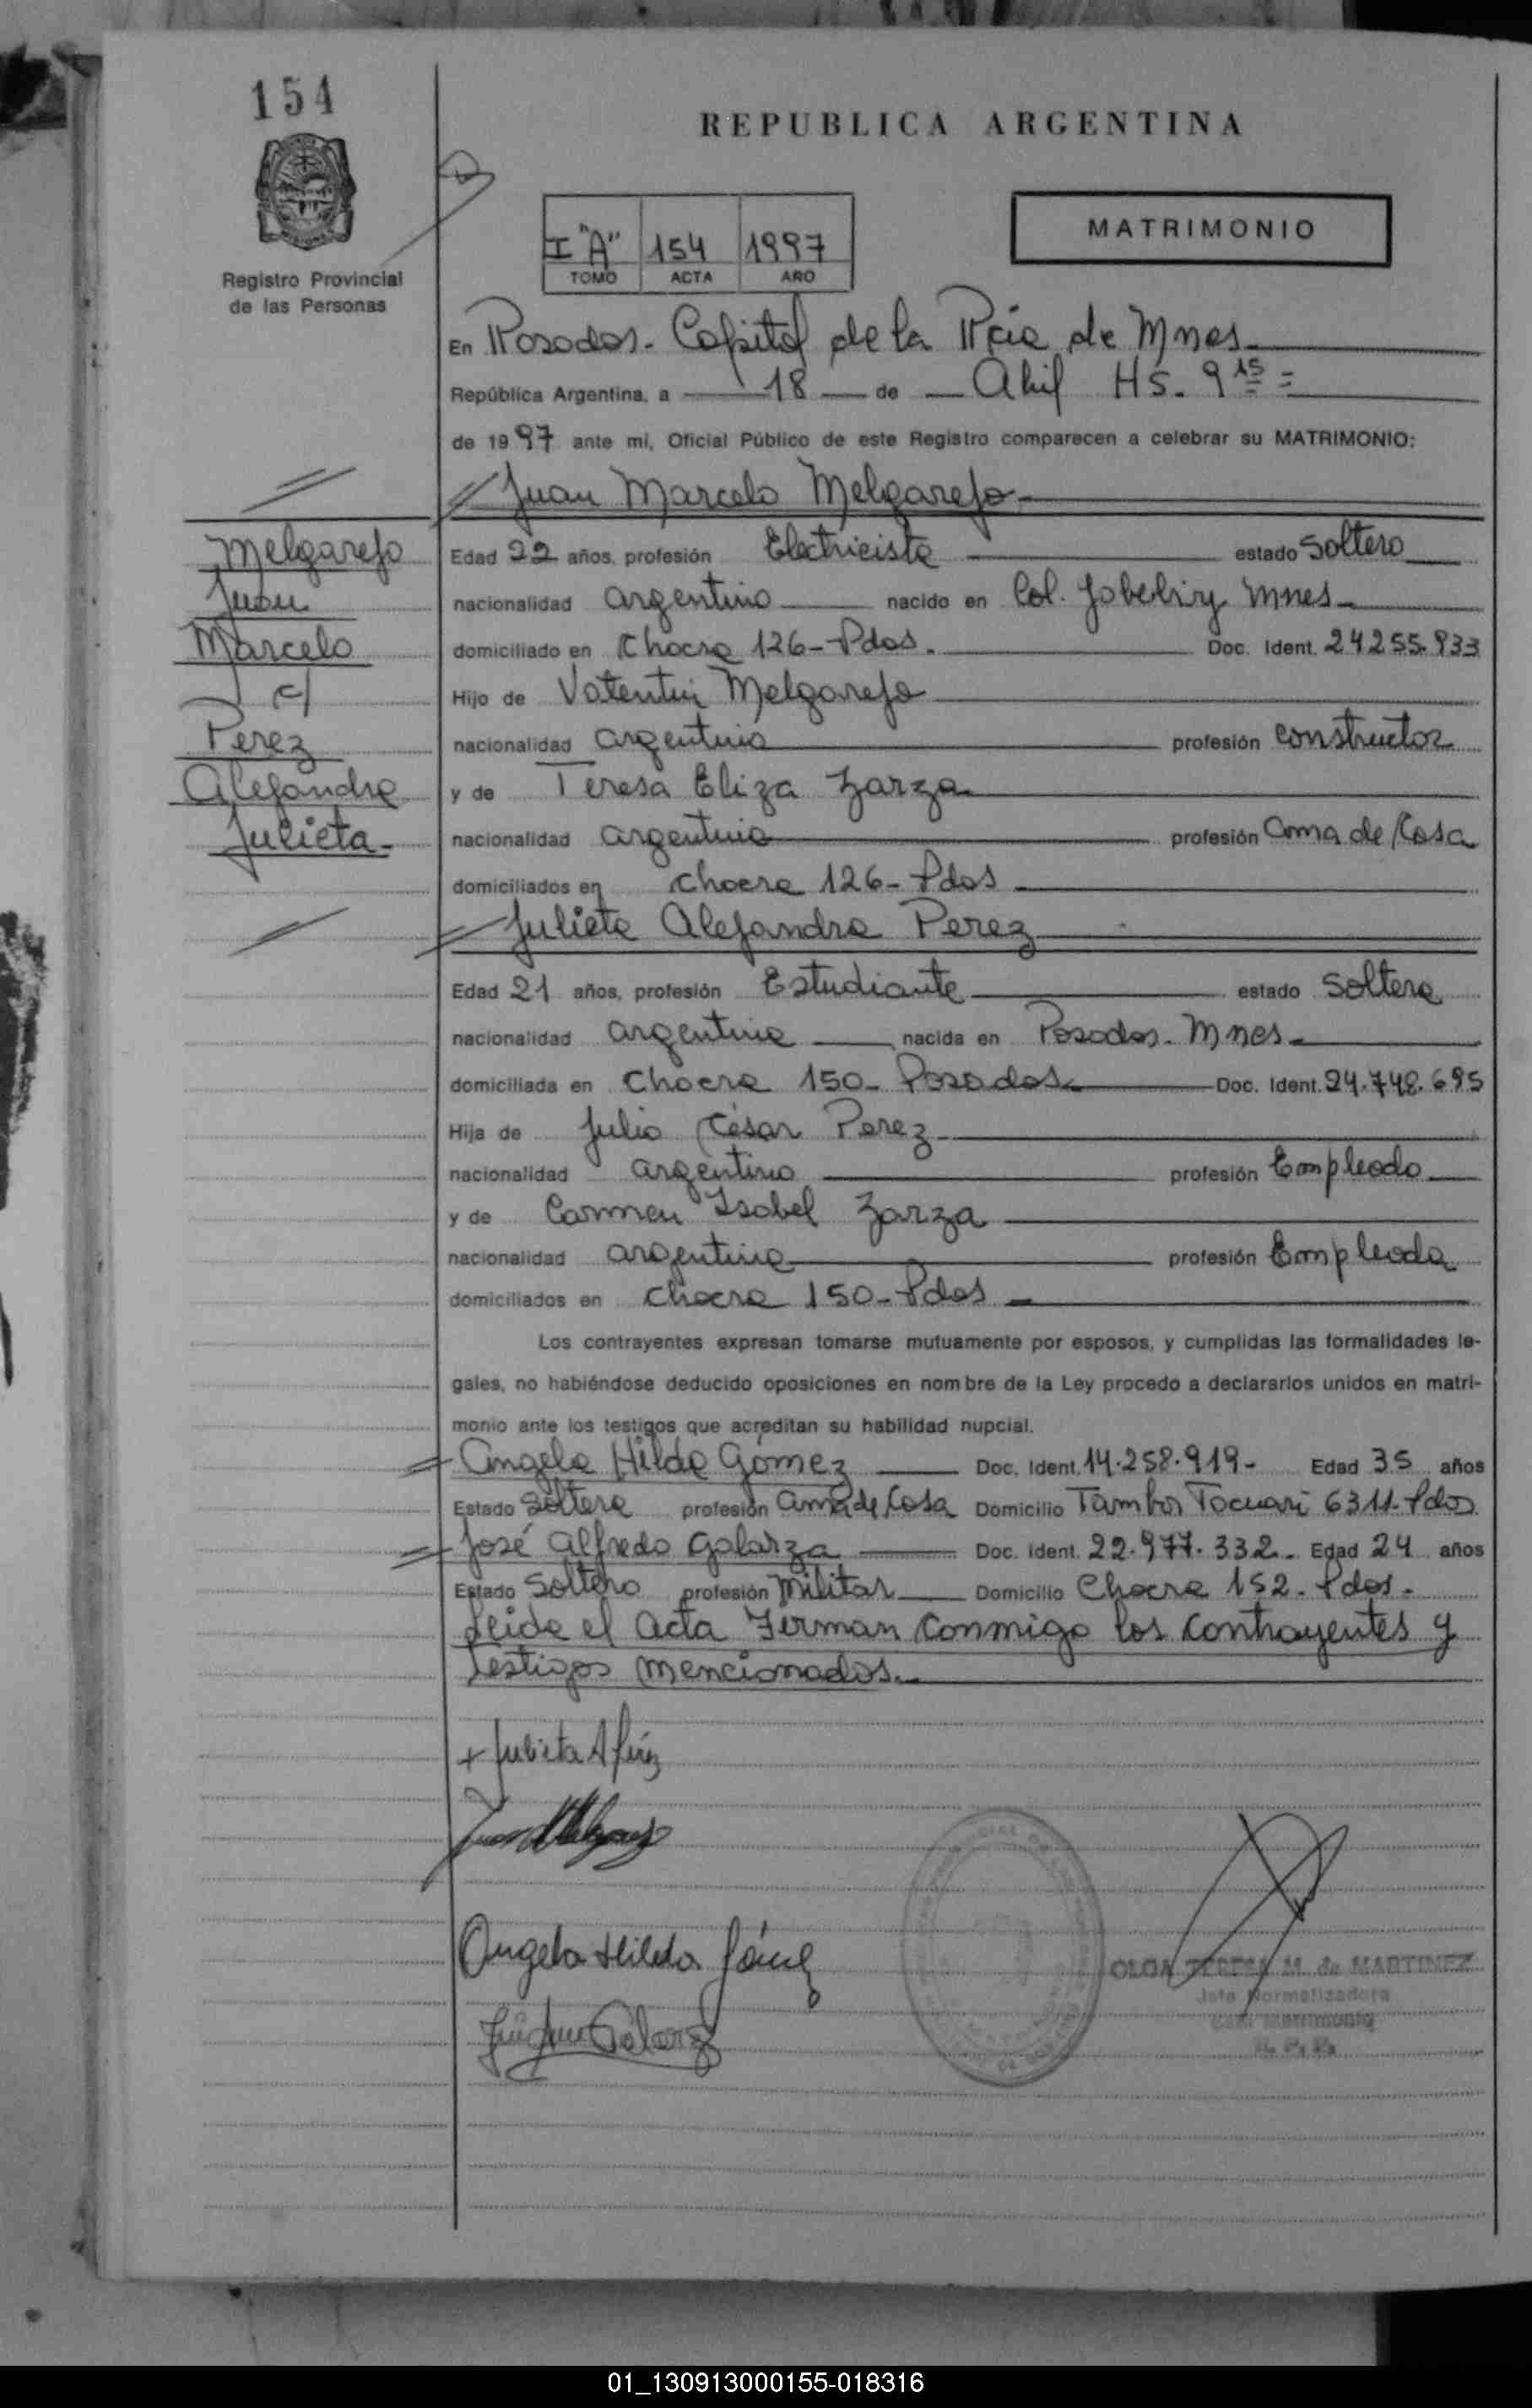 154
REPUBLICA ARGENTINA
MATRIMONIO
I "A" 154 1997
TOMO ACTA AÑO
Registro Provincial
de las Personas
En Posadas - Capital de la Pcia de Mnes
República Argentina, a 18 de Abril Hs. 9 15 =
de 1997 ante mí, Oficial Público de este Registro comparecen a celebrar su MATRIMONIO:
Juan Marcelo Melgarejo
Melgarejo
Juan
Marcelo
c/
Perez
Alejandra
Julieta
Edad 22 años, profesión Electricista estado Soltero
nacionalidad argentino nacido en Col. Mnes
domiciliado en Chacra 126 - Pdas. Doc. Ident. 24255.933
Hijo de Valentin Melgarejo
nacionalidad argentino profesión constructor
y de Teresa Eliza Zarza
nacionalidad argentina profesión ama de Casa
domiciliados en chacra 126 - Pdas
Julieta Alejandra Perez
Edad 21 años, profesión Estudiante estado Soltera
nacionalidad argentina nacida en Posadas. Mnes
domiciliada en Chacra 150 - Posadas Doc. Ident. 24.748.695
Hija de Julio César Perez
nacionalidad argentino profesión Empleado
y de Carmen Isabel Zarza
nacionalidad argentina profesión Empleada
domiciliados en chacra 150 - Pdas
Los contrayentes expresan tomarse mutuamente por esposos, y cumplidas las formalidades le-
gales, no habiéndose deducido oposiciones en nombre de la Ley procedo a declararlos unidos en matri-
monio ante los testigos que acreditan su habilidad nupcial.
Angela Hilda Gómez Doc. Ident. 14.258.919 - Edad 35 años
Estado Soltera profesión ama de Casa Domicilio Tambor Tacuari 6311 - Pdas
José Alfredo Galarza Doc. Ident. 22.977.332 - Edad 24 años
Estado Soltero profesión Militar Domicilio Chacra 152 - Pdas.
Leida el acta Firman conmigo los contrayentes y
testigos mencionados.
+ Julieta A Pérez
Angela Hilda Gómez
Galarza
OLGA TERESA M. de MARTINEZ
Jefa Normalizadora
Matrimonio
01_130913000155-018316